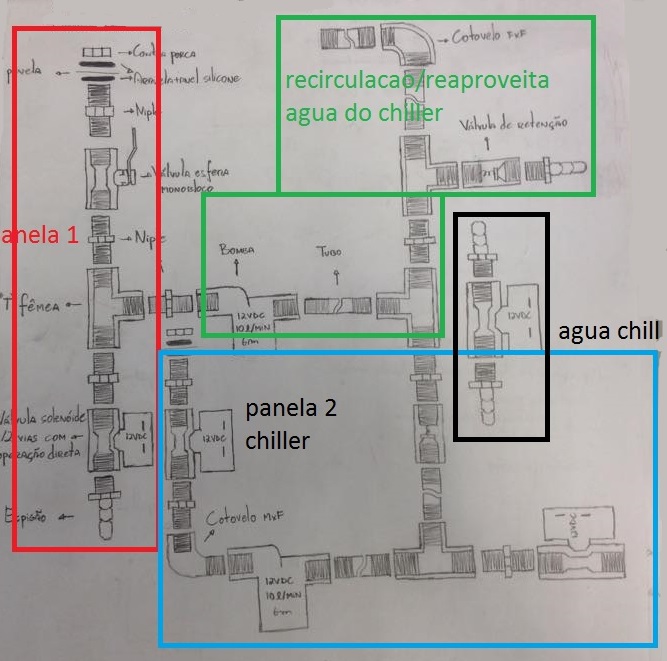 Contra porca
panela
Arruela+anel silicone
Niple
Válvula esfera
monobloco
anela 1
Niple
T fêmea
Válvula solenóide
2 vias com
operação direta
12VDC
Espigão
recirculacao/reaproveita
agua do chiller
Cotovelo FxF
Válvula de retenção
Bomba
Tubo
12VDC
10l/min
6m
12VDC
agua chill
panela 2
chiller
12VDC
Cotovelo MxF
12VDC
10l/min
6m
12VDC